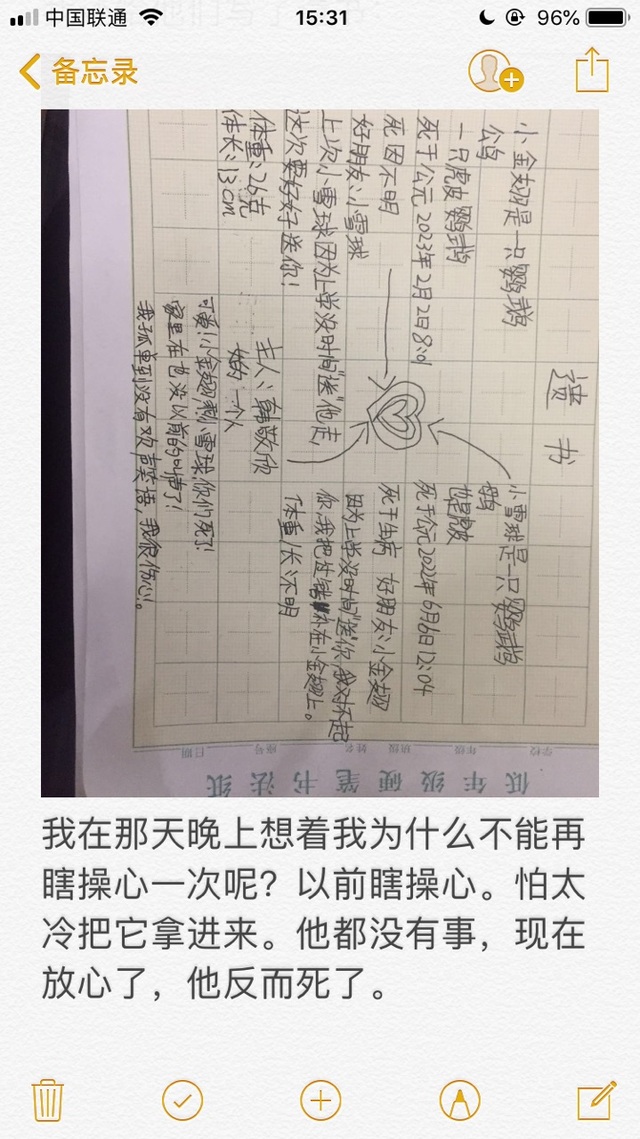 中国联通 15:31 96%
备忘录
遗书
小金翅是一只鹦鹉
公鸟
一只虎皮鹦鹉
死于公元2023年2月2日8:01
死因不明
好朋友:小雪球
上次小雪球因为上学没时间"送"他走,
这次要好好送你!
体重:26克
体长:13cm
小雪球是一只鹦鹉
死于公元2022年6月6日12:04
死于生病 好朋友:小金翅
因为上学没时间"送"你,我对不起
你,我把住结补在小金翅上。
体重/长:不明
主人:韩敬欣
她的一个人
可爱!小金翅剩雪球,你们死了!
家里在也没以前的叫声了!
我孤单到没有欢声笑语,我很伤心!。
学校 年级 班级 姓名 座号 日期
低年级硬笔书法纸
我在那天晚上想着我为什么不能再
瞎操心一次呢?以前瞎操心。怕太
冷把它拿进来。他都没有事,现在
放心了,他反而死了。